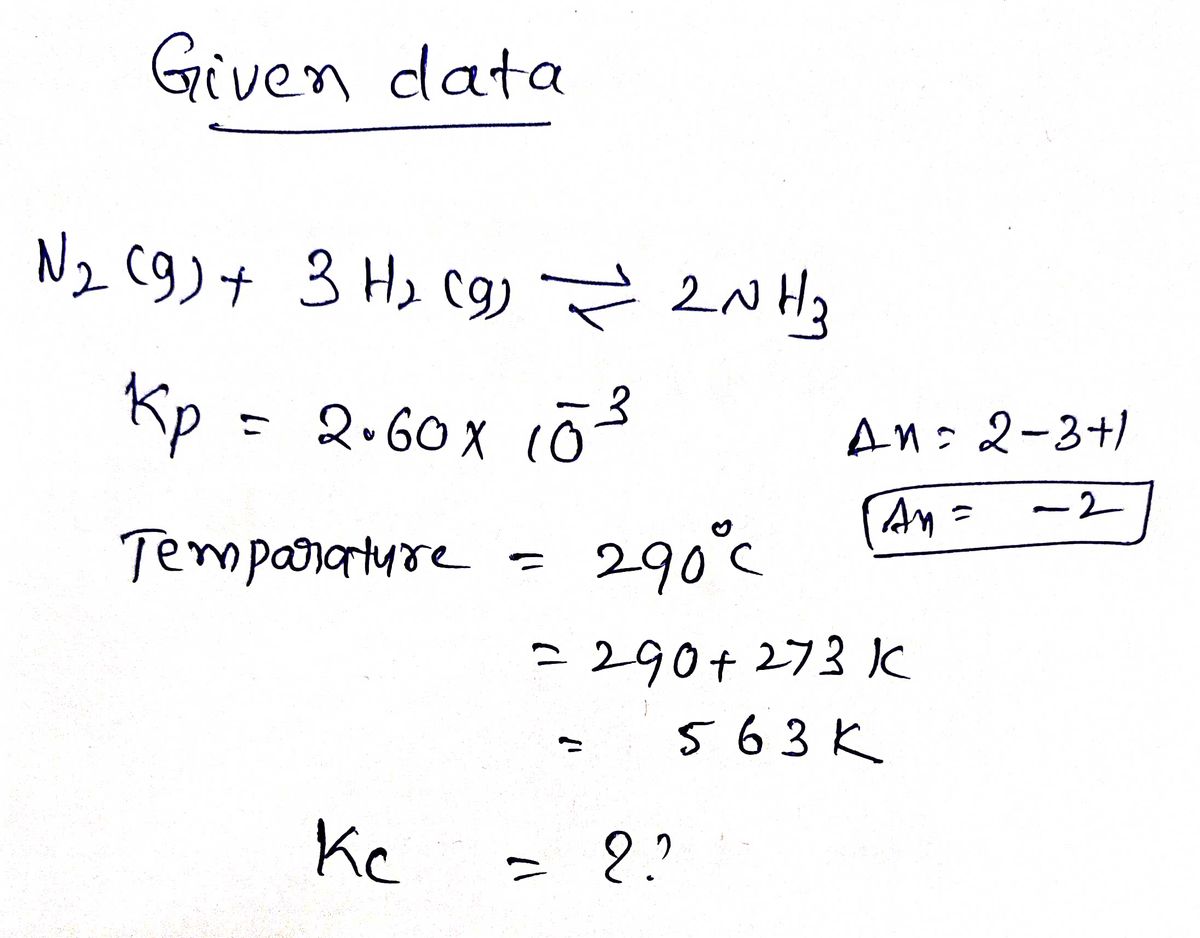 Given data
N₂ (g) + 3 H₂ (g) ⇌ 2NH₃
Kp = 2.60 x 10⁻³
Δn = 2-3+1
Δn = -2
Temparature = 290°C
= 290 + 273 K
= 563 K
Kc = ??